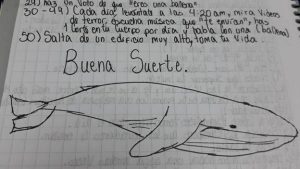 29) Haz un Voto de que "eres una ballena"
30-49) Cada dia, levantate a las 4:20 am, mira videos
de terror, escucha música que "te envían", has
1 en tu cuerpo por día y habla con una (ballena)
50) Salta de un edificio muy alto, toma tu vida.
Buena Suerte.